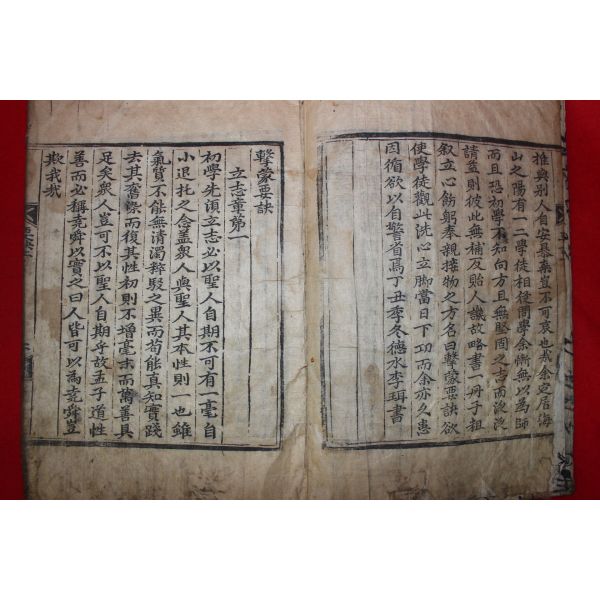 推與別人自安暴棄豈不可哀也哉余定居海
山之陽有一二學徒相從問學余慚無以爲師
而且恐初學不知向方且無堅固之志而泛泛
請益則彼此無補反貽人譏故略書一冊子粗
叙立心飭躬奉親接物之方名曰擊蒙要訣欲
使學徒觀此洗心立脚當日下功而余亦久患
因循欲以自警省焉丁丑季冬德水李珥書
擊蒙要訣
立志章第一
初學先須立志必以聖人自期不可有一毫自
小退托之念盖衆人與聖人其本性則一也雖
氣質不能無清濁粹駁之異而苟能真知實踐
去其舊染而復其性初則不增毫末而萬善具
足矣衆人豈可不以聖人自期乎故孟子道性
善而必稱堯舜以實之曰人皆可以爲堯舜豈
欺我哉